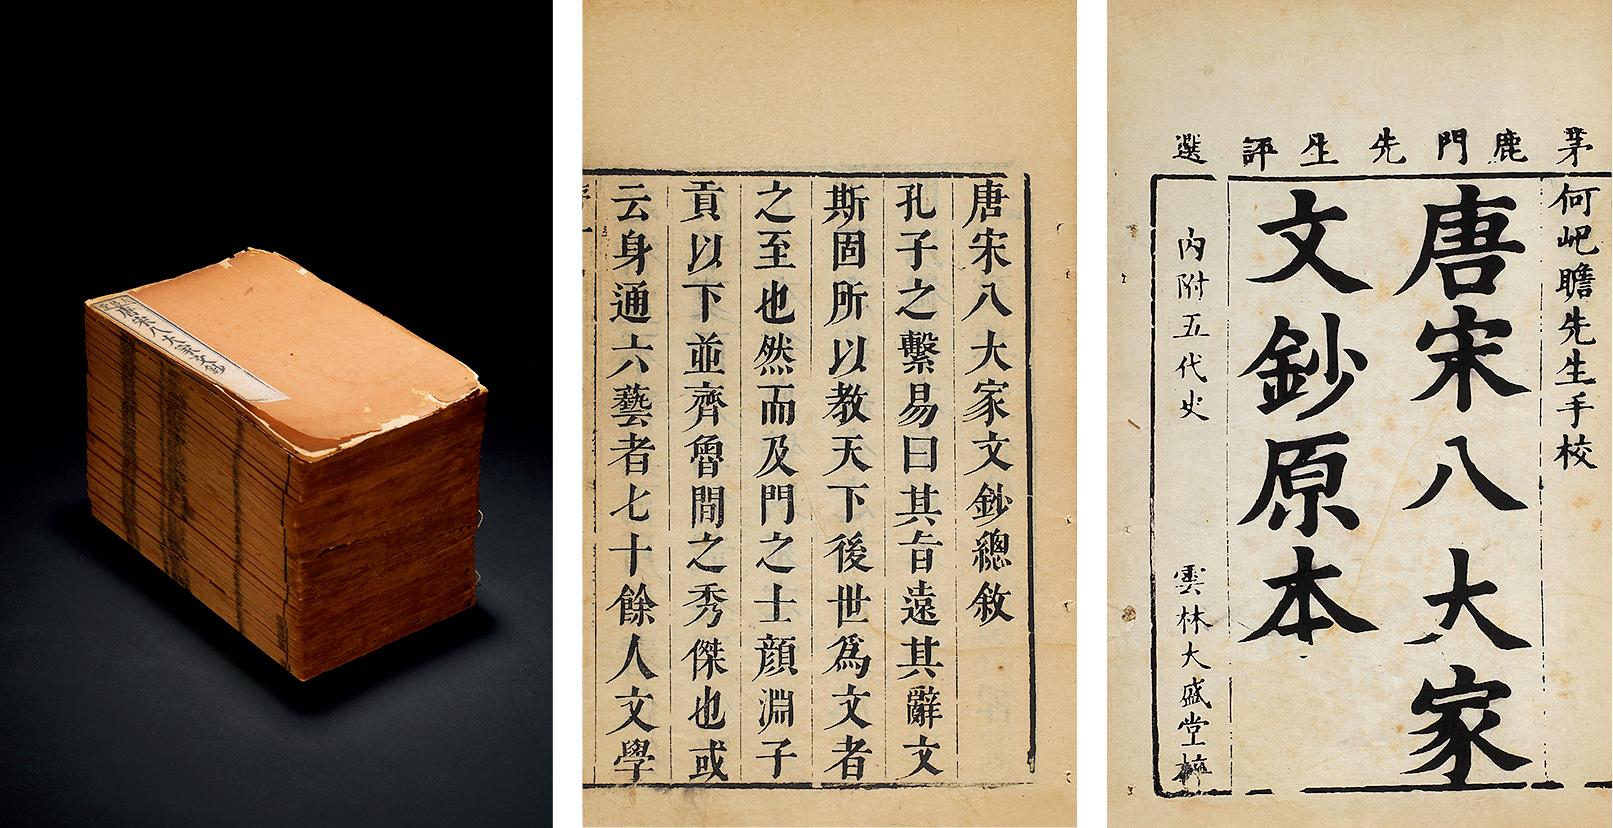 唐宋八大家文鈔
唐宋八大家文鈔總敘
孔子之繫易曰其旨遠其辭文
斯固所以教天下後世爲文者
之至也然而及門之士顏淵子
貢以下並齊魯間之秀傑也或
云身通六藝者七十餘人文學
茅鹿門先生評選
何屺瞻先生手校
唐宋八大家
文鈔原本
內附五代史
雲林大盛堂梓